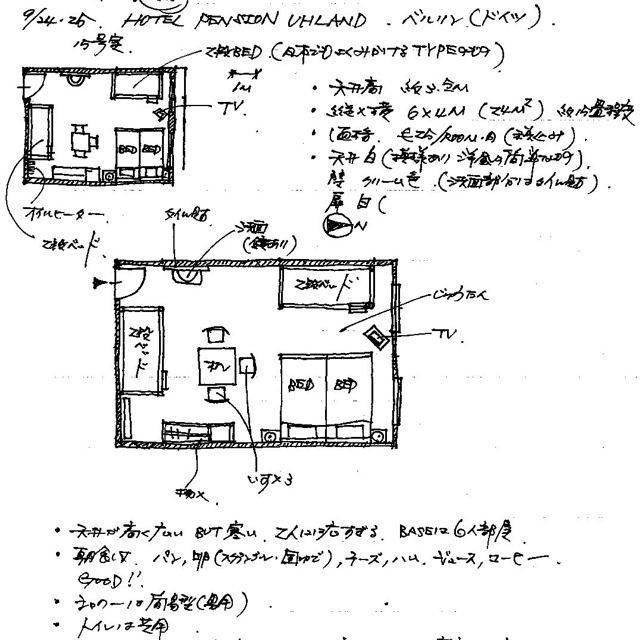 9/24・25. HOTEL PENSION UHLAND. ベルリン(ドイツ).
15号室
2段BED (日本でもよくみかけるTYPEのもの)
1M
TV
・天井高 約
・縦×横 6×4M (24M²) 約15畳程度
・1面積
・天井 白
壁 クリーム色 (洗面部分はタイル貼).
扉 白 (
N
BED BED
オイルヒーター.
2段ベッド
タイル貼
洗面
(鏡あり)
2段ベッド
じゅうたん
TV.
2段ベッド
BED BED
いす×3
・天井が高く広い BUT 寒い. 2人には広すぎる. BASEは6人部屋
・朝食は パン, 卵 (スクランブル・固ゆで), チーズ, ハム, ジュース, コーヒー
GOOD!!
・シャワーは 簡易型 (専用)
・トイレは共用